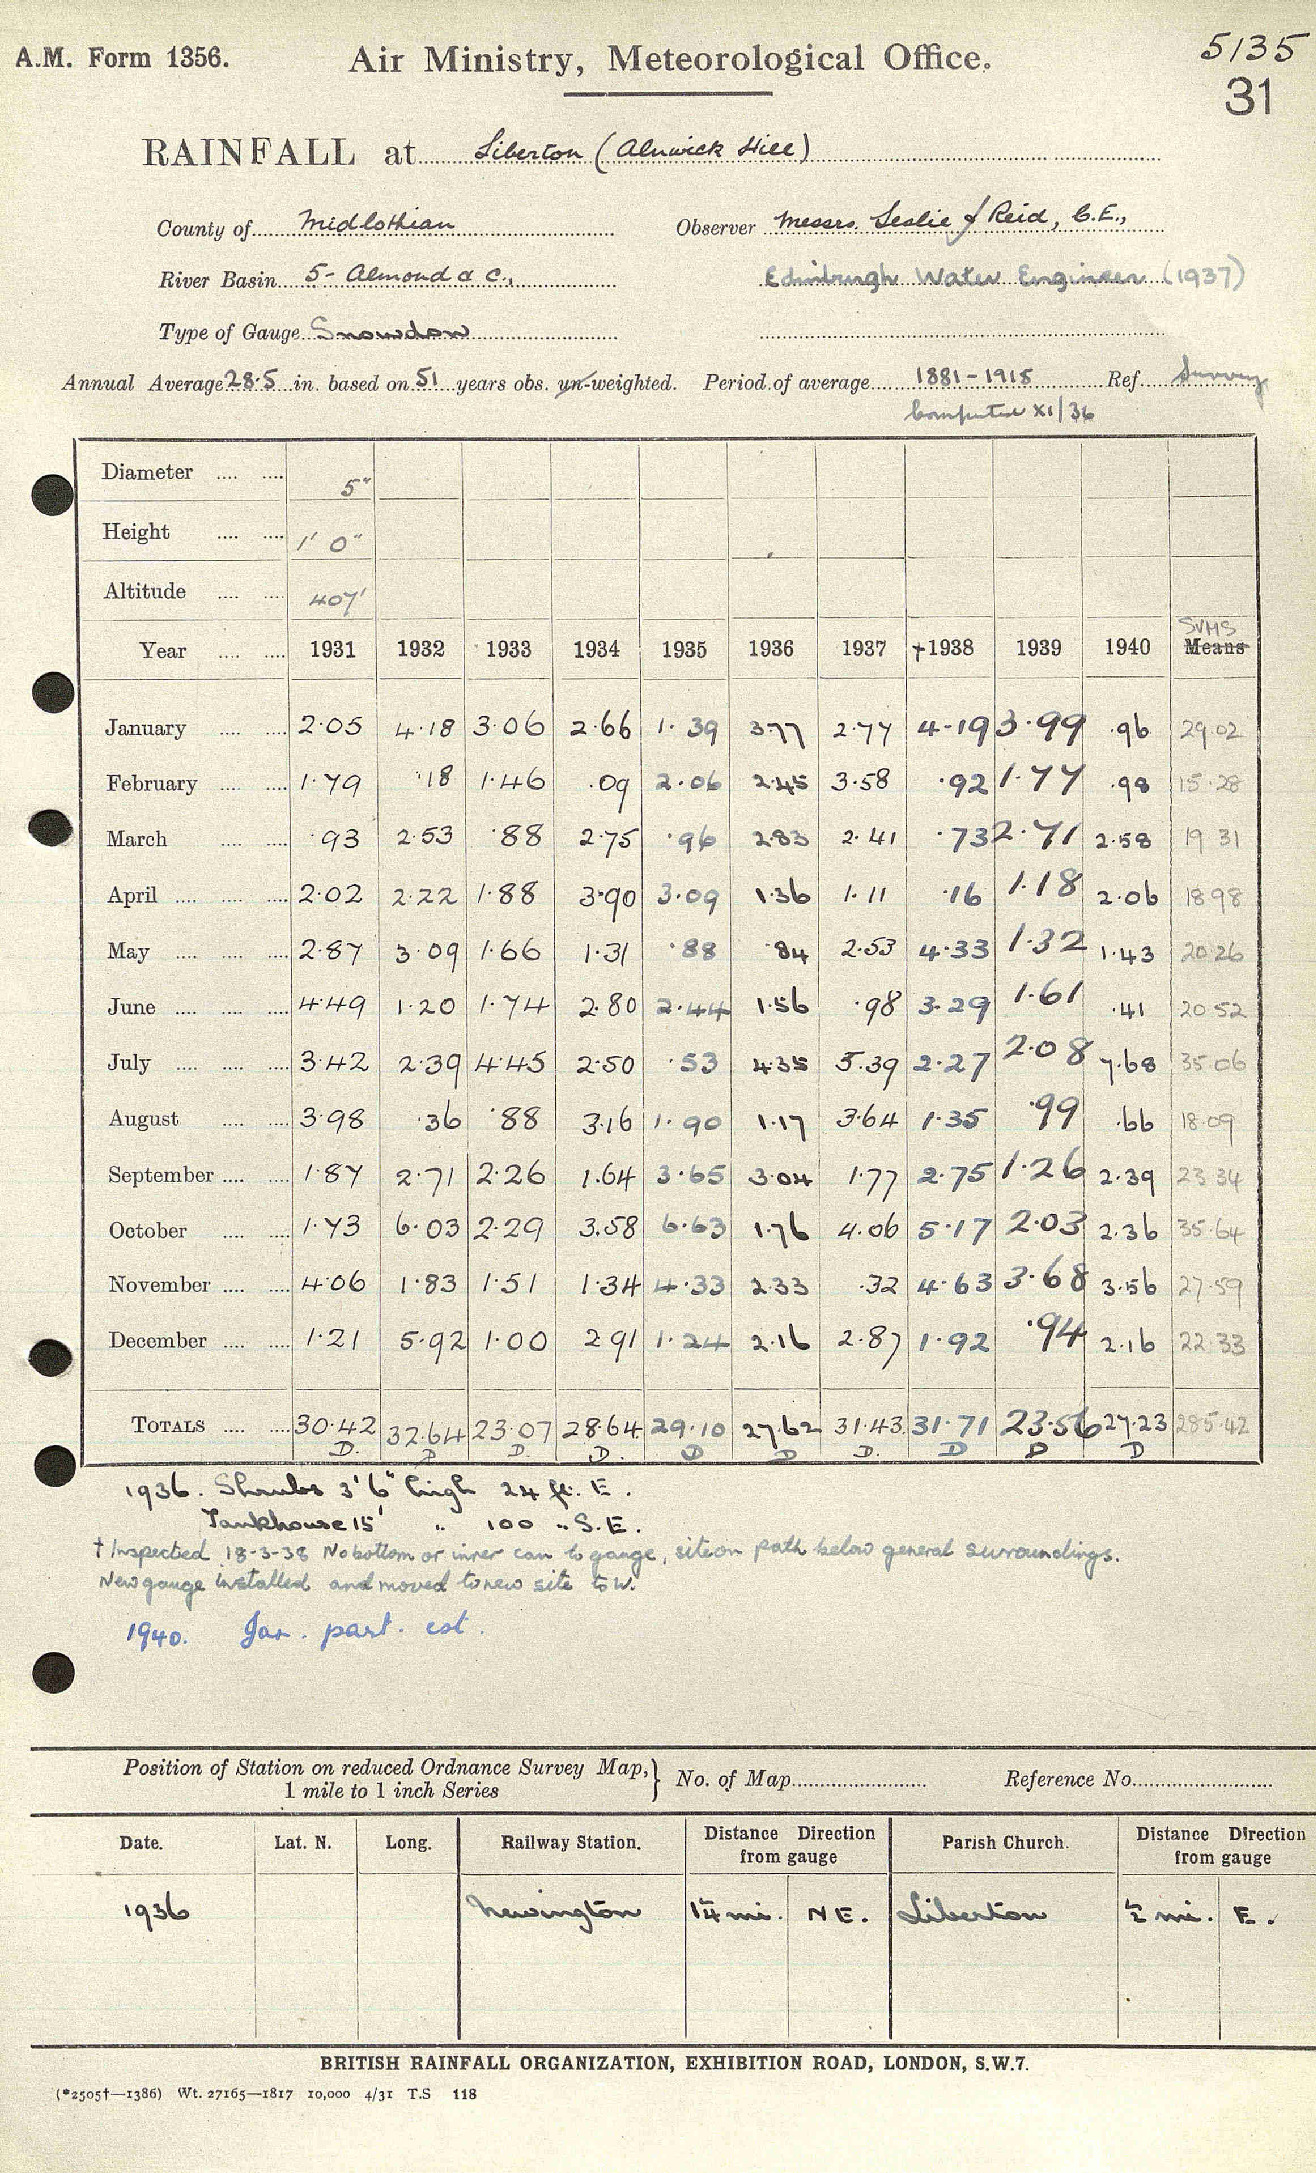 A.M. Form 1356.
Air Ministry, Meteorological Office.
5135
31
RAINFALL at Liberton (Alnwick Hill)
County of Midlothian Observer Messrs. Leslie & Reid, C.E.,
River Basin 5 - Almond & c., Edinburgh Water Engineer (1937)
Type of Gauge Snowdon
Annual Average 28.5 in. based on 51 years obs. un-weighted. Period of average 1881-1915 Ref. Survey
Computed XI/36
Diameter 5"
Height 1' 0"
Altitude 407'
SUMS
Year 1931 1932 1933 1934 1935 1936 1937 †1938 1939 1940 Means
January 2.05 4.18 3.06 2.66 1.39 3.77 2.77 4.19 3.99 .96 29.02
February 1.79 .18 1.46 .09 2.06 2.45 3.58 .92 1.77 .98 15.28
March .93 2.53 .88 2.75 .96 2.83 2.41 .73 2.71 2.58 19.31
April 2.02 2.22 1.88 3.90 3.09 1.36 1.11 .16 1.18 2.06 18.98
May 2.87 3.09 1.66 1.31 .88 .84 2.53 4.33 1.32 1.43 20.26
June 4.49 1.20 1.74 2.80 2.44 1.56 .98 3.29 1.61 .41 20.52
July 3.42 2.39 4.45 2.50 .53 4.35 5.39 2.27 2.08 7.68 35.06
August 3.98 .36 .88 3.16 1.90 1.17 3.64 1.35 .99 .66 18.09
September 1.87 2.71 2.26 1.64 3.65 3.04 1.77 2.75 1.26 2.39 23.34
October 1.73 6.03 2.29 3.58 6.63 1.76 4.06 5.17 2.03 2.36 35.64
November 4.06 1.83 1.51 1.34 4.33 2.33 .32 4.63 3.68 3.56 27.59
December 1.21 5.92 1.00 2.91 1.24 2.16 2.87 1.92 .94 2.16 22.33
TOTALS 30.42 32.64 23.07 28.64 29.10 27.62 31.43 31.71 23.56 27.23 285.42
D. D D D. D D D. D D D
1936. Shrubs 3' 6" high 24 ft. E.
Tankhouse 15' " 100 " S.E.
† Inspected 18-3-38 No bottom or inner can to gauge, site on path below general surroundings.
New gauge installed and moved to new site to W.
1940. Jan. part. est.
Position of Station on reduced Ordnance Survey Map, } No. of Map Reference No.
1 mile to 1 inch Series
Date. Lat. N. Long. Railway Station. Distance Direction from gauge Parish Church. Distance Direction from gauge
1936 Newington 1¼ mi. NE. Liberton ½ mi. E.
BRITISH RAINFALL ORGANIZATION, EXHIBITION ROAD, LONDON, S.W.7.
(*2505†—1386) Wt. 27165—1817 10,000 4/31 T.S 118